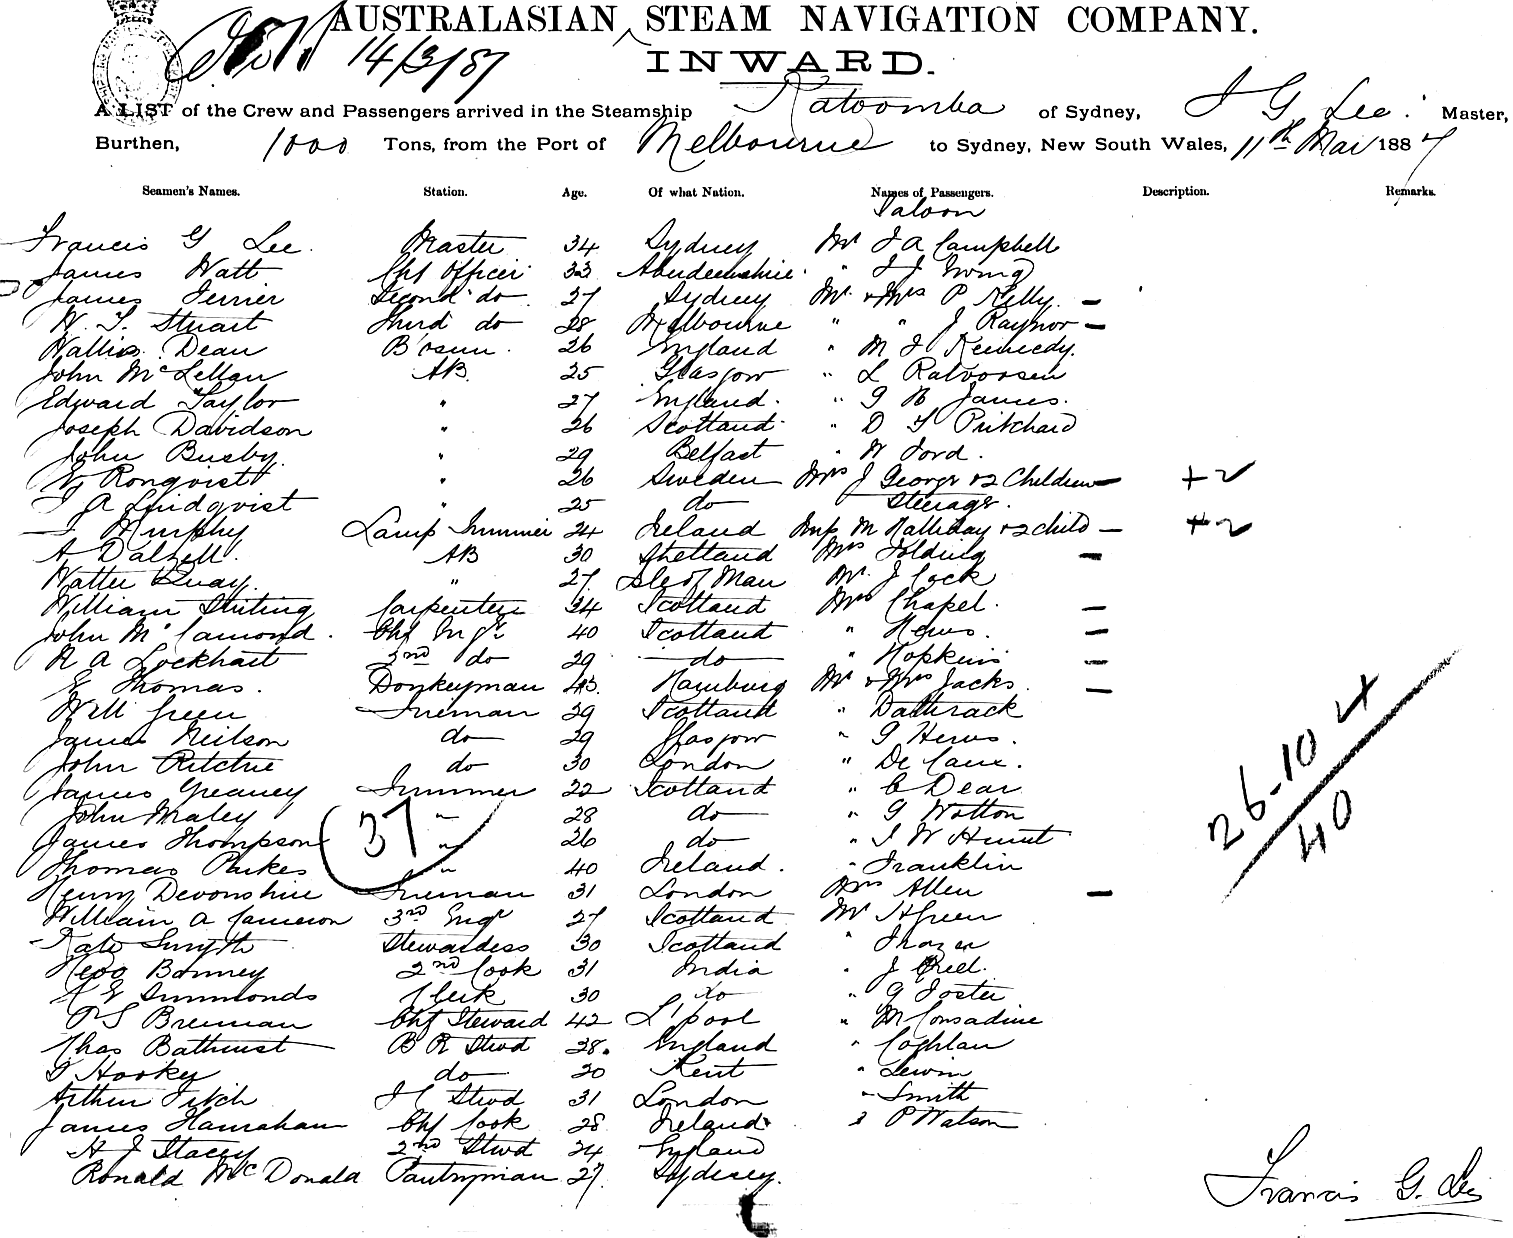 AUSTRALASIAN STEAM NAVIGATION COMPANY.
14/3/87
INWARD.
A LIST of the Crew and Passengers arrived in the Steamship Katoomba of Sydney, F G Lee. Master,
Burthen, 1000 Tons, from the Port of Melbourne to Sydney, New South Wales, 11th Mar 1887
Seamen's Names. Station. Age. Of what Nation. Names of Passengers. Description. Remarks.
Saloon
Francis G Lee. Master 34 Sydney Mr J A Campbell
James Watt Chf Officer 33 Aberdeenshire. " J J Ewing
James Ferrier Second do 27 Sydney Mr & Mrs P Kelly. —
W. T. Stuart Third do 28 Melbourne " " J Raynor —
Wallis Dean B'osun. 26 England " M J Kennedy.
John McLellan AB. 25 Glasgow " L
Edward Taylor " 27 England. " G H James.
Joseph Davidson " 26 Scotland " D T Pritchard
John Busby. " 29 Belfast " W Ford.
Ronqvist " 26 Sweden Mrs J George & 2 Children — + 2
J A Lindqvist " 25 do Steerage.
Murphy Lamp Trimmer 24 Ireland M Halliday & 2 child — + 2
A Dalzell. AB 30 Shetland Mrs Folding —
Walter Quay. " 27. Isle of Man Mr. J Cock
William Stirling Carpenter 34 Scotland Mrs Chapel. —
John McCamond. Chf Engr 40 Scotland " Hews. —
R A Lockhart 2nd do 29 do " Hopkins —
E Thomas. Donkeyman 43. Hamburg Mr & Mrs Jacks. —
Will Green Fireman 29 Scotland "
James Neilson do 29 Glasgow " G Hews.
John Ritchie do 30 London " De Caux.
James Greaney Trimmer 22 Scotland " C Dear
John Maley " 28 do " G Wotton
James Thompson " 26 do " J W Hunt
37
Thomas Parkes " 40 Ireland. " Franklin
Henry Devonshire Fireman 31 London Mrs Allen —
William A Cameron 3rd Engr 27 Scotland Mr H Green
Kate Smyth Stewardess 30 Scotland " Frazer
Bonney 2nd Cook 31 India " J Reed.
Simmonds Clerk 30 do " G Foster
P S Brennan Chf Steward 42 L'pool " M Consadine
Chas Bathurst B R Stwd 28. England " Coghlan
G Hooker do 20 Kent " Lewin
Arthur Fitch Stwd 31 London " Smith
James Hanrahan Chf Cook 28 Ireland " P Watson
H J Stacey 2nd Stwd 24 England
Ronald McDonald Pantryman 27. Sydney.
26-10 4
40
Francis G. Lee